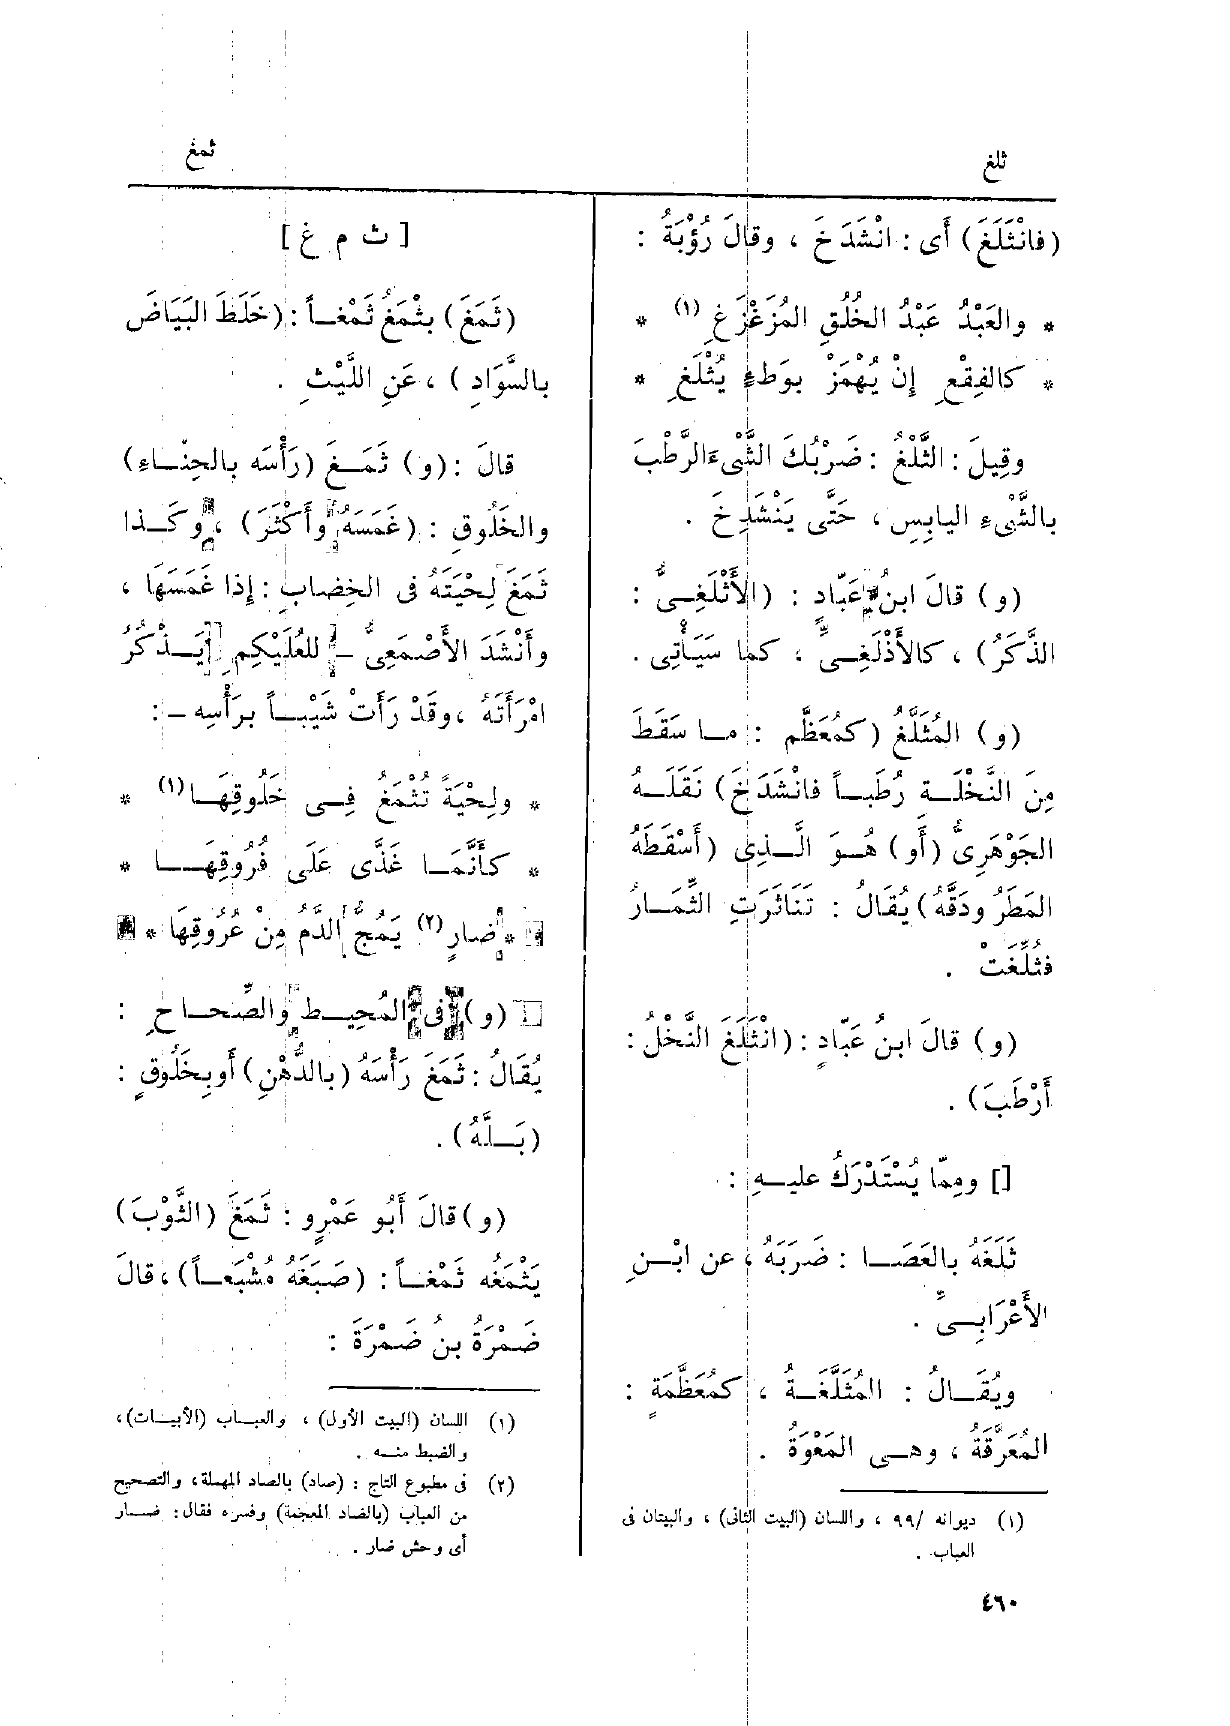 ثلغ
ثمغ
(فانْثَلَغَ) أَى : انْشَدَخَ ، وقالَ رُؤْبَةُ :
* والعَبْدُ عَبْدُ الخُلُقِ المُزَغْزَغِ (١) *
* كالفِقْعِ إِنْ يُهْمَزْ بوَطْءٍ يُثْلَغِ *
وقِيلَ : الثَّلْغُ : ضَرْبُكَ الشَّىْءَ الرَّطْبَ
بالشَّىْءِ اليابِسِ ، حَتَّى يَنْشَدِخَ .
(و) قالَ ابنُ عَبّادٍ : (الأَثْلَغِىُّ :
الذَّكَرُ) ، كالأَذْلَغِىِّ ، كما سَيَأْتِى .
(و) المُثَلَّغُ (كمُعَظَّم : ما سَقَطَ
مِنَ النَّخْلَةِ رُطَباً فانْشَدَخَ) نَقَلَهُ
الجَوْهَرِىُّ (أَو) هُوَ الَّذِى (أَسْقَطَهُ
المَطَرُ ودَقَّهُ) يُقَالُ : تَنَاثَرَتِ الثِّمَارُ
فثُلِّغَتْ .
(و) قالَ ابنُ عَبّادٍ : (انْثَلَغَ النَّخْلُ :
أَرْطَبَ) .
[] ومِمّا يُسْتَدْرَكُ عليهِ :
ثَلَغَهُ بالعَصَا : ضَرَبَهُ ، عن ابْنِ
الأَعْرَابِىِّ .
ويُقَالُ : المُثَلَّغَةُ ، كمُعَظَّمَةٍ :
المُعَرَّقَةُ ، وهى المَعْوَةُ .
(١) ديوانه /٩٩ ، واللسان (البيت الثانى) ، والبيتان فى
العباب .
٤٦٠
[ ث م غ ]
(ثَمَغَ) يثْمَغُ ثَمْغاً : (خَلَطَ البَيَاضَ
بالسَّوَادِ) ، عَنِ اللَّيْثِ .
قالَ : (و) ثَمَغَ (رَأْسَه بالحِنَاءِ)
والخَلُوقِ : (غَمَسَهُ وأَكْثَرَ) ، وكَذا
ثَمَغَ لِحْيَتَهُ فى الخِضابِ : إِذا غَمَسَهَا ،
وأَنْشَدَ الأَصْمَعِىُّ - للعُلَيْكِمِ يَذْكُرُ
امْرَأَتَهُ ، وقَدْ رَأَتْ شَيْباً برَأْسِه - :
* ولِحْيَةً تُثْمَغُ فِى خَلُوقِهَا (١) *
* كأَنَّمَا غَذَّى عَلَى فُرُوقِهَا *
* ضارٍ (٢) يَمُجُّ الدَّمُ مِنْ عُرُوقِهَا *
(و) فى المُحِيطِ والصِّحاحِ :
يُقَالُ : ثَمَغَ رَأْسَهُ (بالدُّهْنِ) أَو بخَلُوقٍ :
(بَلَّهُ) .
(و) قالَ أَبُو عَمْرٍو : ثَمَغَ (الثَّوْبَ)
يَثْمَغُه ثَمْغاً : (صَبَغَهُ مُشْبَعاً) ، قالَ
ضَمْرَةُ بنُ ضَمْرَةَ :
(١) اللسان (البيت الأول) ، والعباب (الأبيات) ،
والضبط منه .
(٢) فى مطبوع التاج : (صاد) بالصاد المهملة ، والتصحيح
من العباب (بالضاد المعجمة) وفسره فقال : ضار
أى وحش ضار .